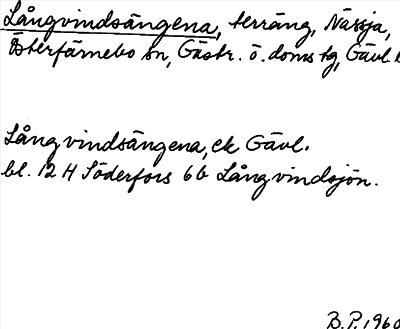 Långvindsängena, terräng, Nässja,
Österfärnebo sn, Gästr. ö. doms tg, Gävl. l
Långvindsängena, ek Gävl.
bl. 12 H Söderfors 6b Långvindsjön.
B.P. 1960